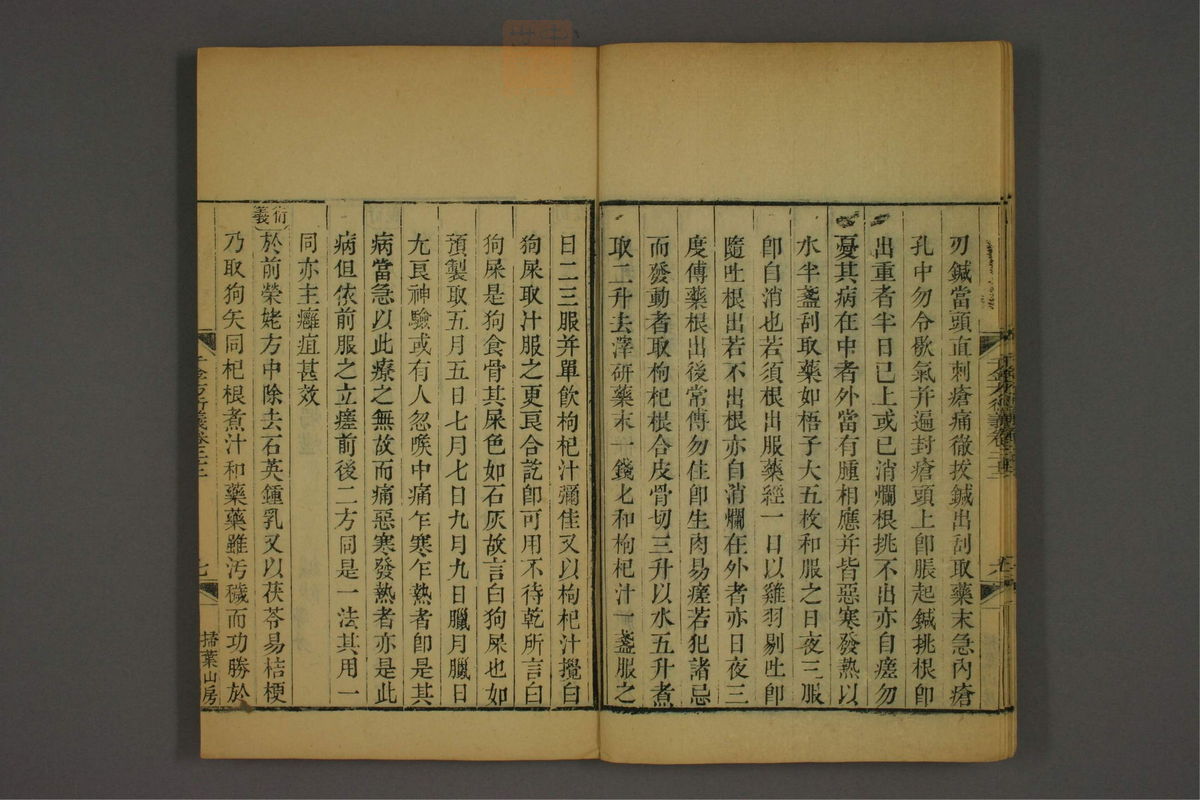 刃鍼當頭直刺瘡痛徹拔鍼出刮取藥末急內瘡
孔中勿令歇氣并遍封瘡頭上卽脹起鍼挑根卽
出重者半日已上或已消爛根挑不出亦自瘥勿
憂其病在中者外當有腫相應并皆惡寒發熱以
水半盞刮取藥如梧子大五枚和服之日夜三服
卽自消也若須根出服藥經一日以雞羽剔吐卽
隨吐根出若不出根亦自消爛在外者亦日夜三
度傅藥根出後常傅勿住卽生肉易瘥若犯諸忌
而發動者取枸杞根合皮骨切三升以水五升煮
取二升去滓研藥末一錢匕和枸杞汁一盞服之
日二三服并單飲枸杞汁彌佳又以枸杞汁攪白
狗屎取汁服之更良合訖卽可用不待乾所言白
狗屎是狗食骨其屎色如石灰故言白狗屎也如
預製取五月五日七月七日九月九日臘月臘日
尤良神驗或有人忽喉中痛乍寒乍熱者卽是其
病當急以此療之無故而痛惡寒發熱者亦是此
病但依前服之立瘥前後二方同是一法其用一
同亦主癰疽甚效
衍義
於前榮姥方中除去石英鍾乳又以茯苓易桔梗
乃取狗矢同杞根煮汁和藥藥雖汚穢而功勝於
千金方衍義卷二十二
七
掃葉山房